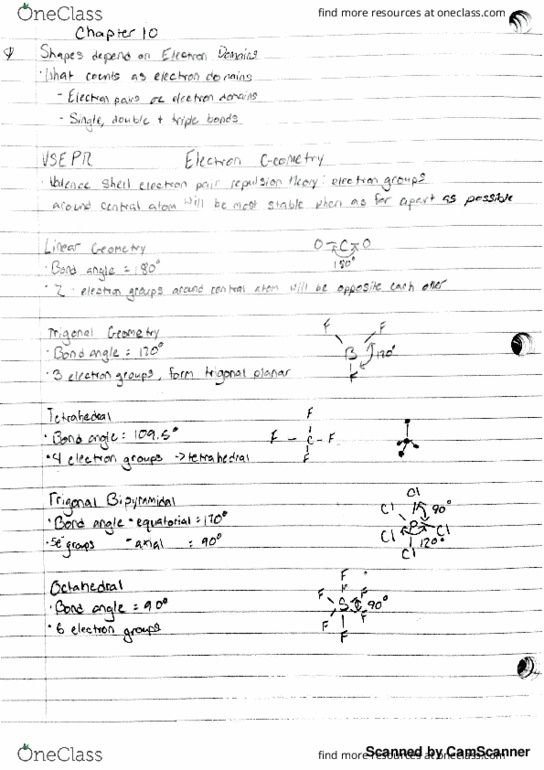 OneClass
find more resources at oneclass.com
Chapter 10
Shapes depend on Electron Domains
· What counts as electron domains
- Electron pairs are electron domains
- Single, double + triple bonds
VSEPR Electron Geometry
· Valence shell electron pair repulsion theory: electron groups
around central atom will be most stable when as far apart as possible
Linear Geometry
· Bond angle = 180°
· 2 electron groups around central atom will be opposite each other
O C O
180°
Trigonal Geometry
· Bond angle = 120°
· 3 electron groups, form trigonal planar
F F
B 120°
F
Tetrahedral
· Bond angle: 109.5°
· 4 electron groups -> tetrahedral
F
F - C - F
F
Trigonal Bipyramidal
· Bond angle - equatorial = 120°
· 5e⁻ groups - axial = 90°
Cl
Cl 90°
P
Cl Cl
120°
Cl
Octahedral
· Bond angle = 90°
· 6 electron groups
F
F F
S 90°
F F
F
OneClass
find more resources at oneclass.com
Scanned by CamScanner